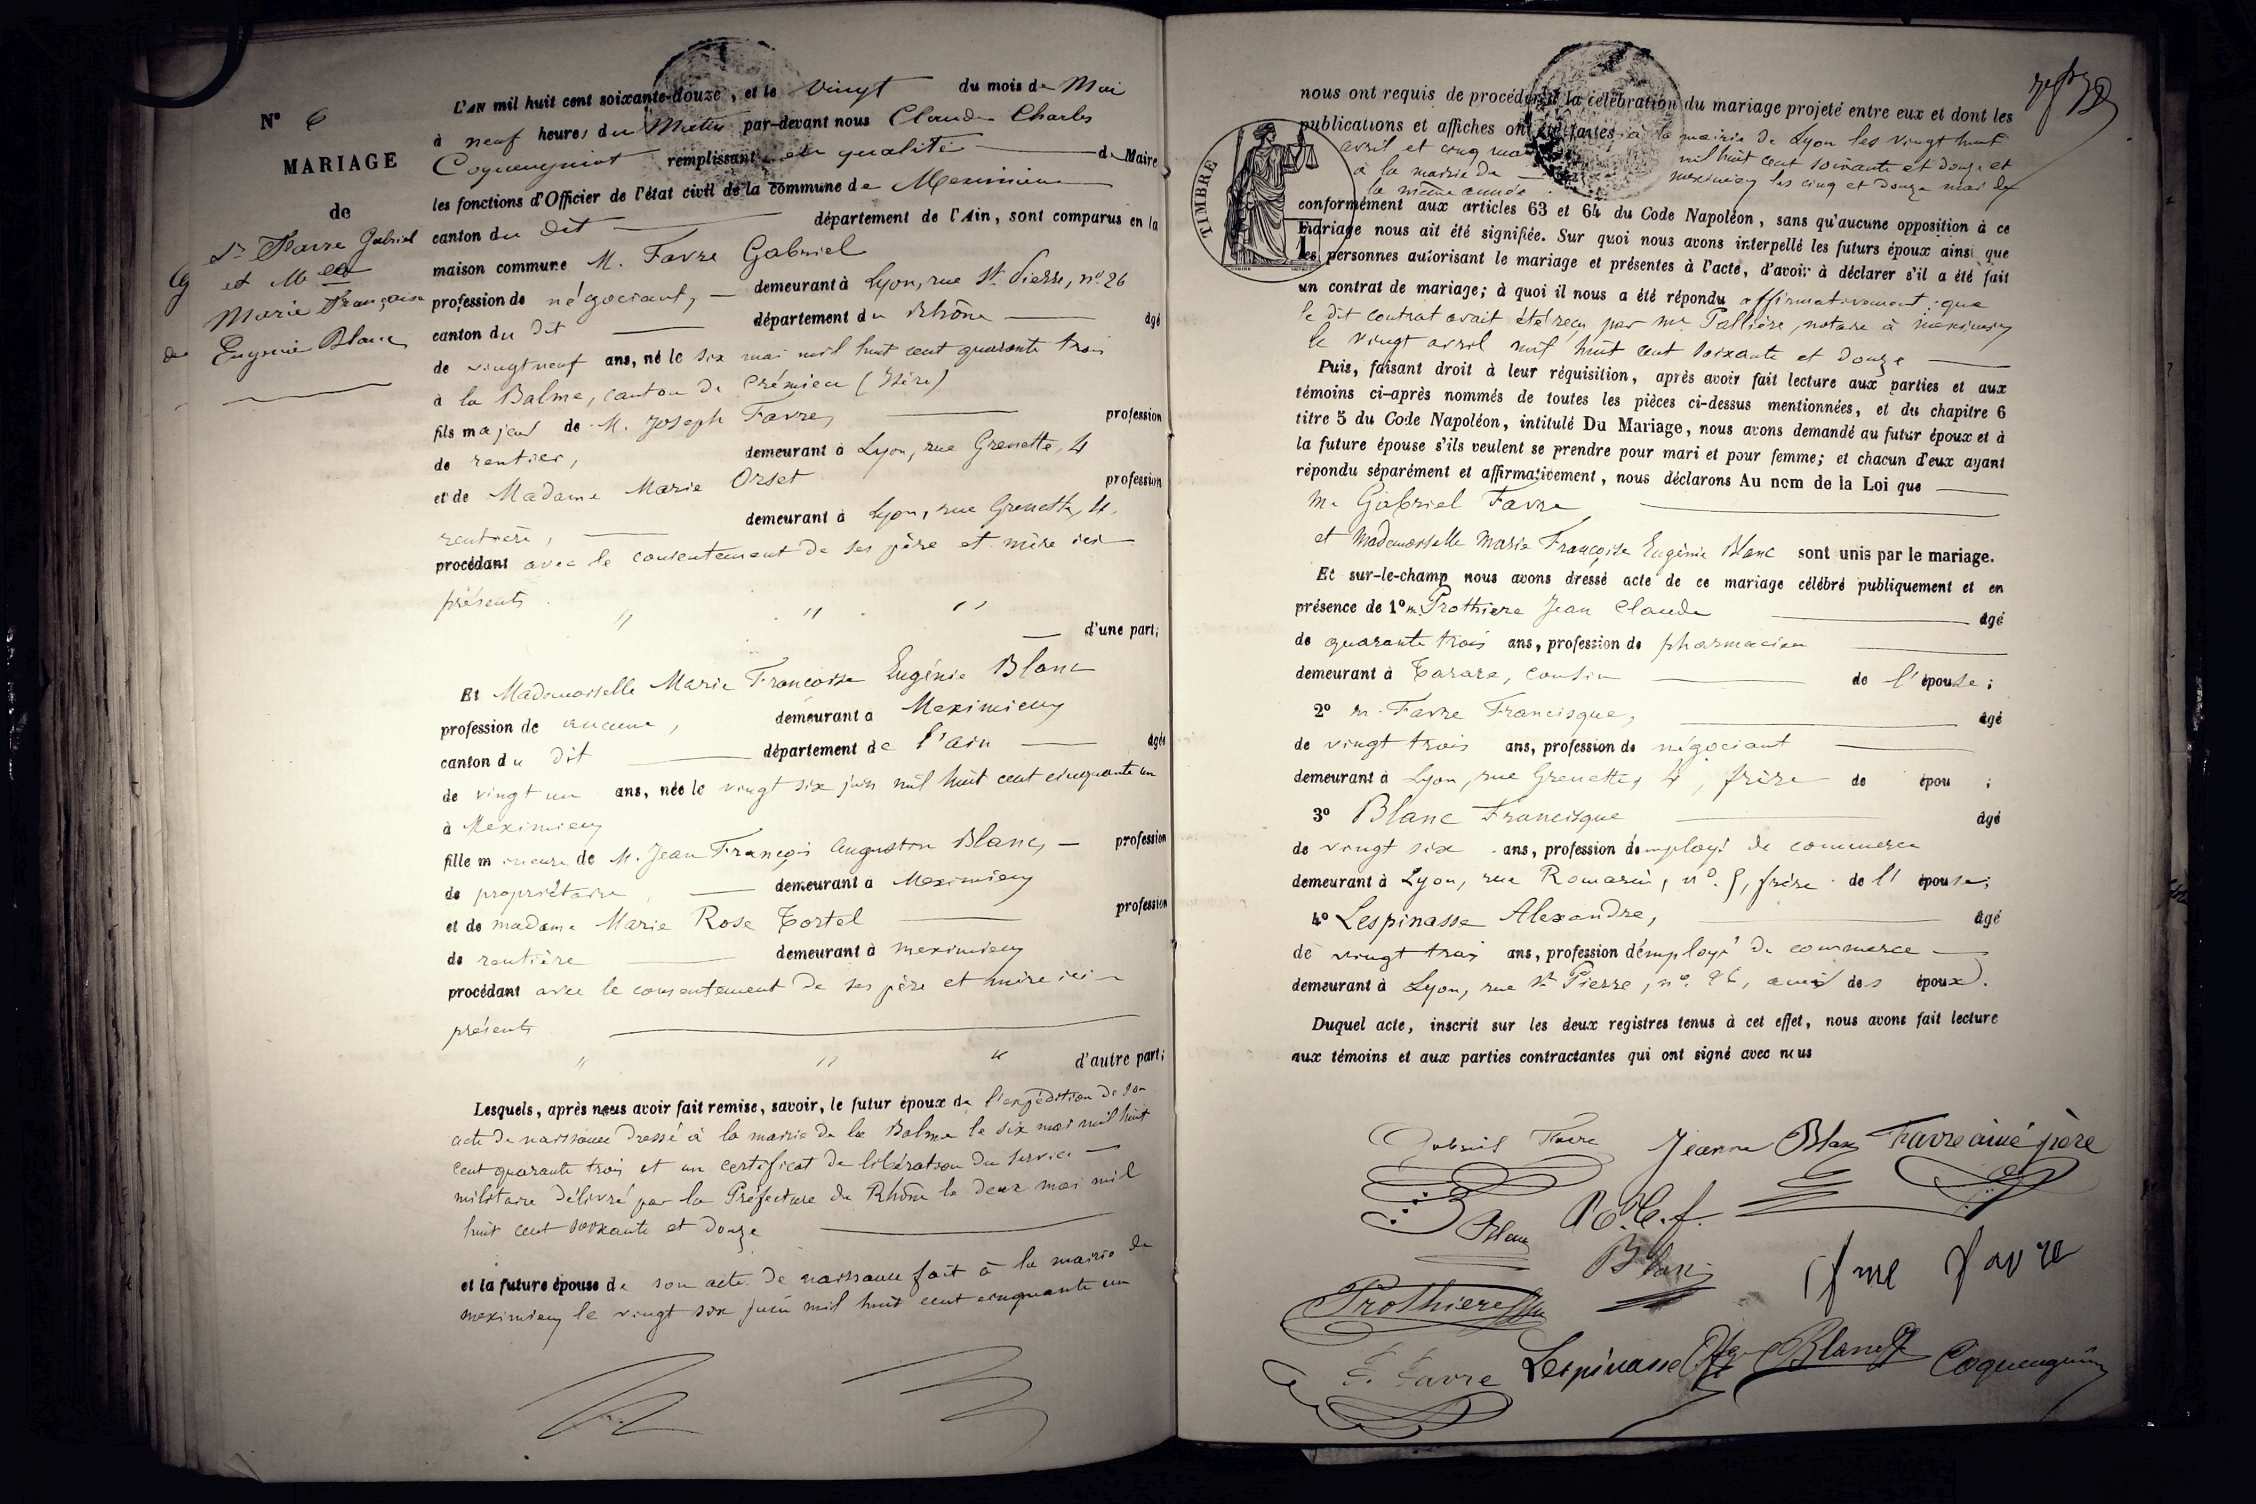 N° 6
MARIAGE
de
Sr Favre Gabriel
et Melle
Marie Françoise
Eugénie Blanc
L'AN mil huit cent soixante-douze, et le vingt du mois de Mai
à neuf heures du Matin par-devant nous Claude Charles
Coquengniot remplissant en qualité de Maire
les fonctions d'Officier de l'état civil de la commune de Meximieux
canton du dit département de l'Ain, sont comparus en la
maison commune M. Favre Gabriel
profession de négociant, demeurant à Lyon, rue St Pierre, n° 26
canton du dit département du Rhône âgé
de vingt neuf ans, né le six mai mil huit cent quarante trois
à la Balme, canton de Crémieu (Isère)
fils majeur de M. Joseph Favre, profession
de rentier, demeurant à Lyon, rue Grenette, 4
et de Madame Marie Orset profession
demeurant à Lyon, rue Grenette, 4.
rentière,
procédant avec le consentement de ses père et mère ici
présents
" " "
d'une part;
Et Mademoiselle Marie Francoise Eugénie Blanc
profession de aucune, demeurant à Meximieux
canton du dit département de l'ain âgée
de vingt un ans, née le vingt six juin mil huit cent cinquante un
à Meximieux
fille mineure de M. Jean François Augustin Blanc, profession
de propriétaire, demeurant à Meximieux
et de madame Marie Rose Tortel profession
de rentière demeurant à meximieux
procédant avec le consentement de ses père et mère ici
présents
" " "
d'autre part;
Lesquels, après nous avoir fait remise, savoir, le futur époux de l'expédition de son
acte de naissance dressé à la mairie de la Balme le six mai mil huit
cent quarante trois et un certificat de libération du service
militaire délivré par la Préfecture du Rhône le deux mai mil
huit cent soixante et douze
et la future épouse de son acte de naissance fait à la mairie de
meximieux le vingt six juin mil huit cent cinquante un
nous ont requis de procéder à la célébration du mariage projeté entre eux et dont les
publications et affiches ont été faites à la mairie de Lyon les vingt huit
avril et cinq mai mil huit cent soixante et douze et
à la mairie de meximieux les cinq et douze mai de
la même année
TIMBRE
conformément aux articles 63 et 64 du Code Napoléon, sans qu'aucune opposition à ce
mariage nous ait été signifiée. Sur quoi nous avons interpellé les futurs époux ainsi que
les personnes autorisant le mariage et présentes à l'acte, d'avoir à déclarer s'il a été fait
un contrat de mariage; à quoi il nous a été répondu affirmativement que
le dit contrat avait été reçu par me Pallière, notaire à meximieux
le vingt avril mil huit cent soixante et douze
Puis, faisant droit à leur réquisition, après avoir fait lecture aux parties et aux
témoins ci-après nommés de toutes les pièces ci-dessus mentionnées, et du chapitre 6
titre 5 du Code Napoléon, intitulé Du Mariage, nous avons demandé au futur époux et à
la future épouse s'ils veulent se prendre pour mari et pour femme; et chacun d'eux ayant
répondu séparément et affirmativement, nous déclarons Au nom de la Loi que
M. Gabriel Favre
et Mademoiselle Marie Françoise Eugénie Blanc sont unis par le mariage.
Et sur-le-champ nous avons dressé acte de ce mariage célébré publiquement et en
présence de 1° m. Prothiere Jean Claude âgé
de quarante trois ans, profession de pharmacien
demeurant à Tarare, cousin de l'épouse;
2° m. Favre Francisque, âgé
de vingt trois ans, profession de négociant
demeurant à Lyon, rue Grenette, 4, frère de épou ;
3° Blanc Francisque âgé
de vingt six ans, profession d'employé de commerce
demeurant à Lyon, rue Romarin, n°. 5, frère de l'épouse;
4° Lespinasse Alexandre, âgé
de vingt trois ans, profession d'employé de commerce
demeurant à Lyon, rue St Pierre, n°. 26, ami des époux.
Duquel acte, inscrit sur les deux registres tenus à cet effet, nous avons fait lecture
aux témoins et aux parties contractantes qui ont signé avec nous
Gabriel Favre Jeanne Blanc Favre ainé père
Blanc
Blanc fme Favre
Prothiere
F. Favre Lespinasse Blanc Coquengniot